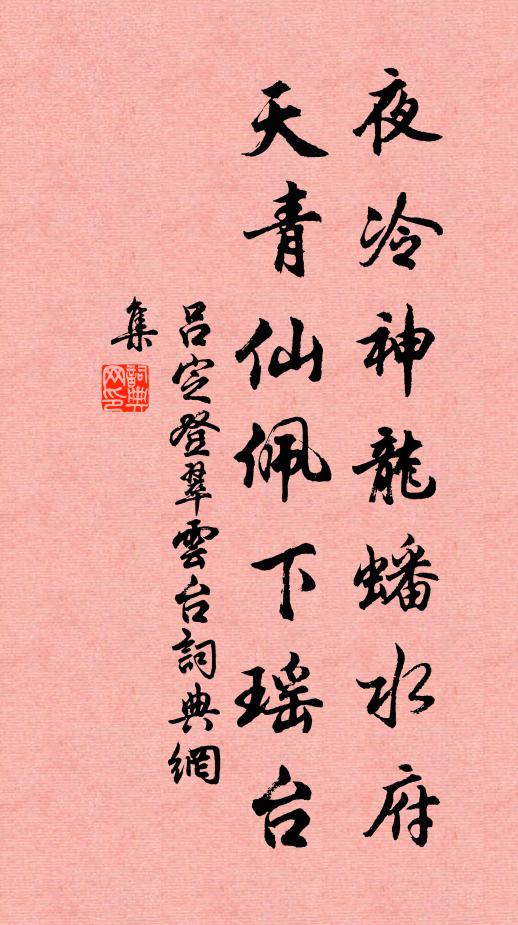 夜冷神龍蟠水府
天青仙佩下瑶台
吕定登翠雲台詞典網
集
詞典網印